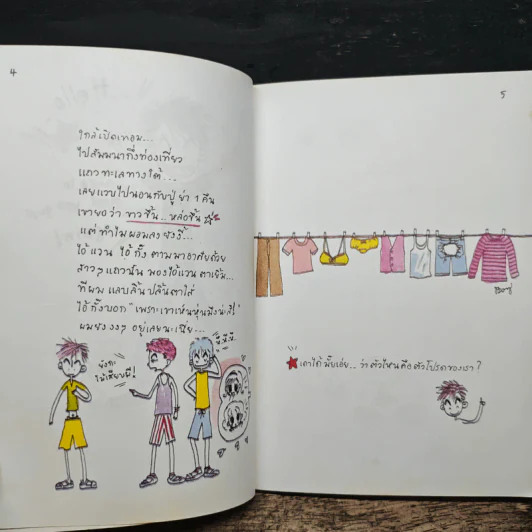 4
ใกล้เปิดเทอม...
ไปสัมมนากึ่งท่องเที่ยว
แถวทะเลทางใต้...
เลยแวบไปนอนกับปู่ ย่า 1 คืน
เขายอว่า ขาวขึ้น..หล่อขึ้น
แต่ทำไมผอมลงยังงี้...
ไอ้แวน ไอ้กั้ง ตามมาอาศัยด้วย
สาวๆแถวนั้น มองไอ้แวนตาเยิ้ม...
ทีผม แลบลิ้น ปลิ้นตาใส่
ไอ้กั้งบอก "เพราะเขาเห็นหุ่นมึงน่ะสิ!"
ผมยัง งงๆ อยู่เลยนะเนี่ย...
ฮิ ฮิ ฮิ
5
เดาได้มั้ยเอ่ย.. ว่าตัวไหนคือตัวโปรดของเรา?